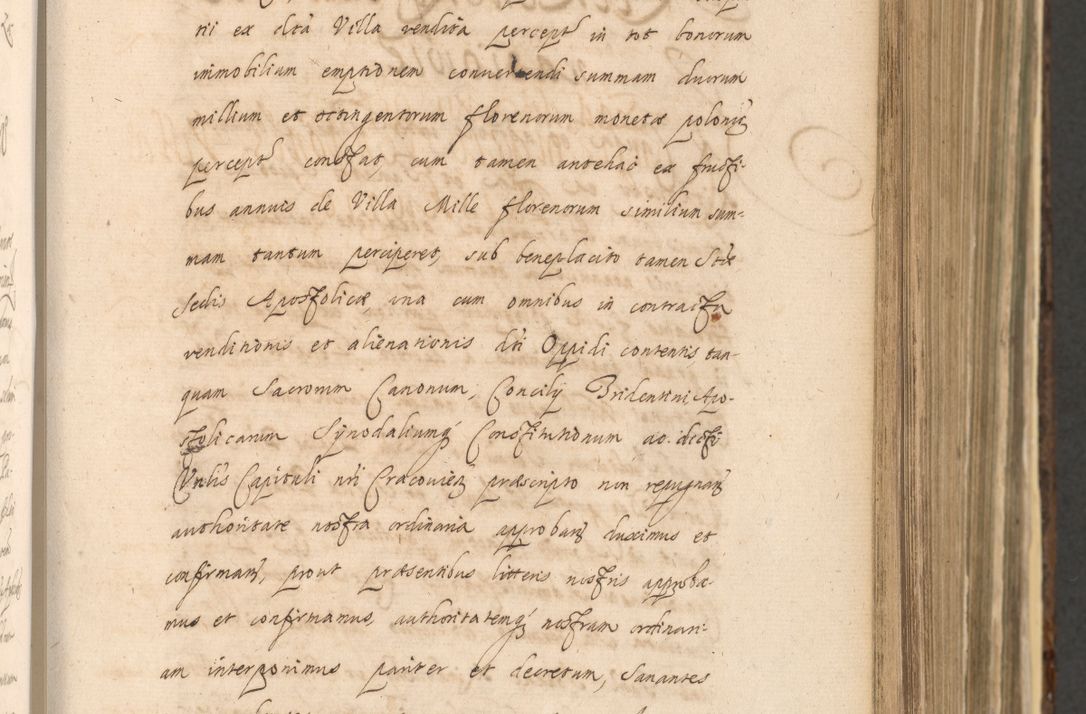 tii ex dicta Villa vendita percept in tot bonorum
immobilium emptionem convertendi summam duorum
millium et octingentorum florenorum monetæ polonic
percept constat, cum tamen antehac ex fructi-
bus annuis de Villa Mille florenorum similium sum-
mam tantum perciperet, sub beneplacito tamen Stæ
Sedis Apostolicæ, una cum omnibus in contractu
venditionis et alienationis dti Oppidi contentis, tan-
quam Sacrorum Canonum, Concilij Tridentini Apo-
stolicarum Synodaliumq Constitutionum ac dicti
Vnlis Capituli nri Cracovien præscripto non repugnan
authoritate nostra ordinaria approban duximus et
confirman, prout præsentibus litteris nostris approba-
mus et confirmamus, authoritatemq nostram ordinari-
am interponimus pariter et decretum, Sanantes